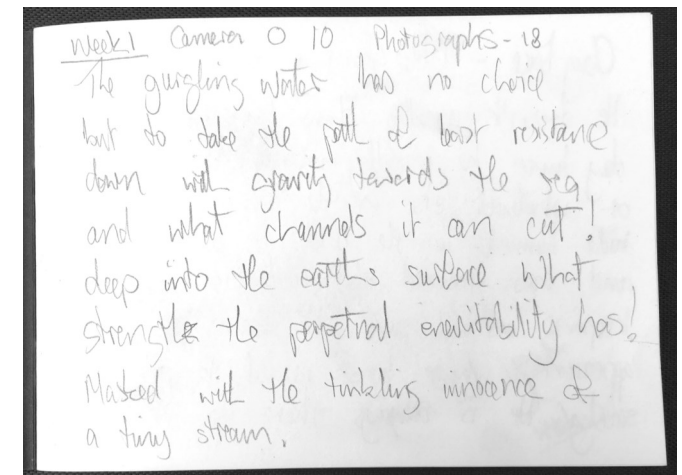 Week 1 Camera O 10 Photographs - 18
The gurgling water has no choice
but to take the path of least resistance
down with gravity towards the sea
and what channels it can cut!
deep into the earths surface What
strength the perpetual enevitability has!
Masked with the tinkling innocence of
a tiny stream.